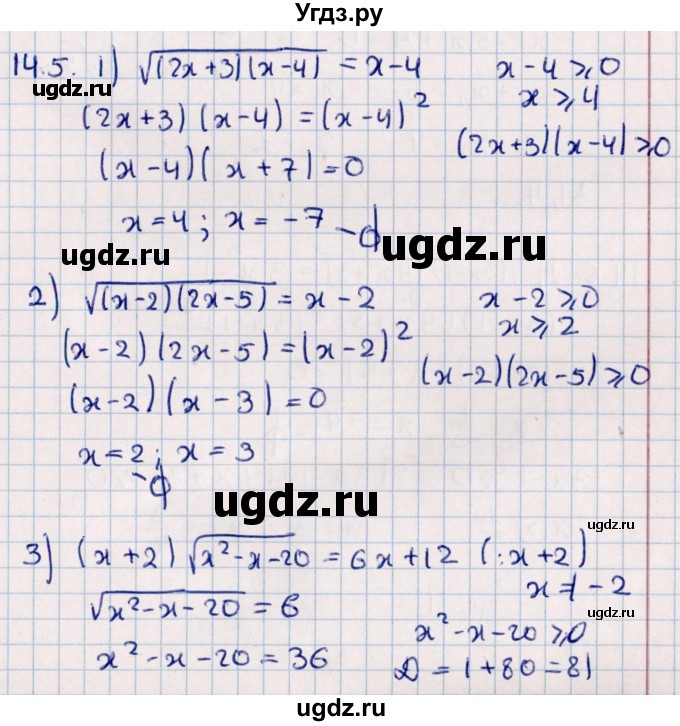 Угдз.ру
14.5. 1) √((2x+3)(x-4)) = x-4     x-4 ⩾ 0
ugdz.ru
x ⩾ 4
(2x+3)(x-4) = (x-4)²
(2x+3)(x-4) ⩾ 0
(x-4)(x+7) = 0
x=4; x=-7 -ɸ
ugdz.ru
ugdz.ru
2) √((x-2)(2x-5)) = x-2     x-2 ⩾ 0
x ⩾ 2
(x-2)(2x-5) = (x-2)²
(x-2)(2x-5) ⩾ 0
(x-2)(x-3) = 0
x=2; x=3
-ɸ
ugdz.ru
ugdz.ru
3) (x+2)√(x²-x-20) = 6x+12 (:x+2)
x ≠ -2
√(x²-x-20) = 6
ugdz.ru
x²-x-20 ⩾ 0
x²-x-20 = 36     D = 1+80 = 81
ugdz.ru